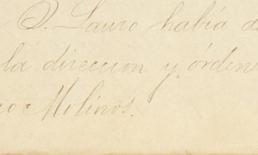 D. Lauro había d
la direccion y órdene
co Molinos.